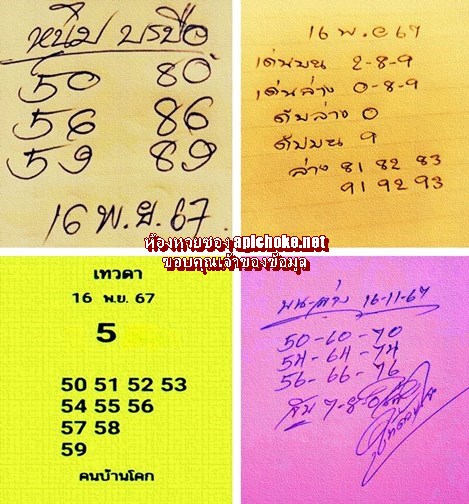 หนุ่ม บรบือ
50 80
56 86
59 89
16 พ.ย. 67
16 พ.ย 67
เด่นบน 2-8-9
เด่นล่าง 0-8-9
ดับล่าง 0
ดับบน 9
ล่าง 81 82 83
91 92 93
ห้องหวยซอง apichoke.net
ขอบคุณเจ้าของข้อมูล
เทวดา
16 พ.ย. 67
5
50 51 52 53
54 55 56
57 58
59
คนบ้านโคก
บน-ล่าง 16-11-67
50-60-70
54-64-74
56-66-76
7-8-0